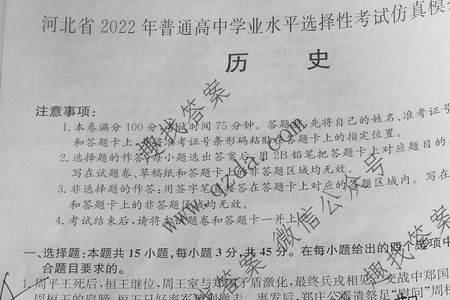 河北省 2022 年普通高中学业水平选择性考试仿真模
历 史
注意事项:
1. 本卷满分 100 分,考试时间 75 分钟。答题前,先将自己的姓名、准考证号
和答题卡上,并将准考证号条形码粘贴在答题卡上的指定位置。
2. 选择题的作答:每小题选出答案后,用 2B 铅笔把答题卡上对应题目的
写在试题卷、草稿纸和答题卡上的非答题区域均无效。
3. 非选择题的作答:用签字笔直接答在答题卡上对应的答题区域内。写在
和答题卡上的非答题区域均无效。
4. 考试结束后,请将本试题卷和答题卡一并上
一、选择题:本题共 15 小题,每小题 3 分,共 45 分。在每小题给出的四个选项中
合题目要求的。
1. 周平王死后,桓王继位,周王室与郑 矛盾激化,最终兵戎相见。交战中郑国
事发后,郑庄公派遣祭足“慰问”周桓
趣找答案
微信公众号
趣找答案